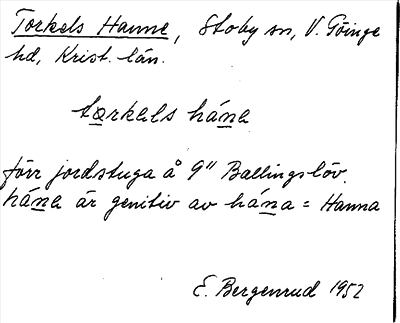 Torkels Hanne, Stoby sn, V. Göinge
hd, Krist. län.
tørkels hána
förr jordstuga å 9" Ballingslöv.
hána är genitiv av hána = Hanna
E. Bergenrud 1952